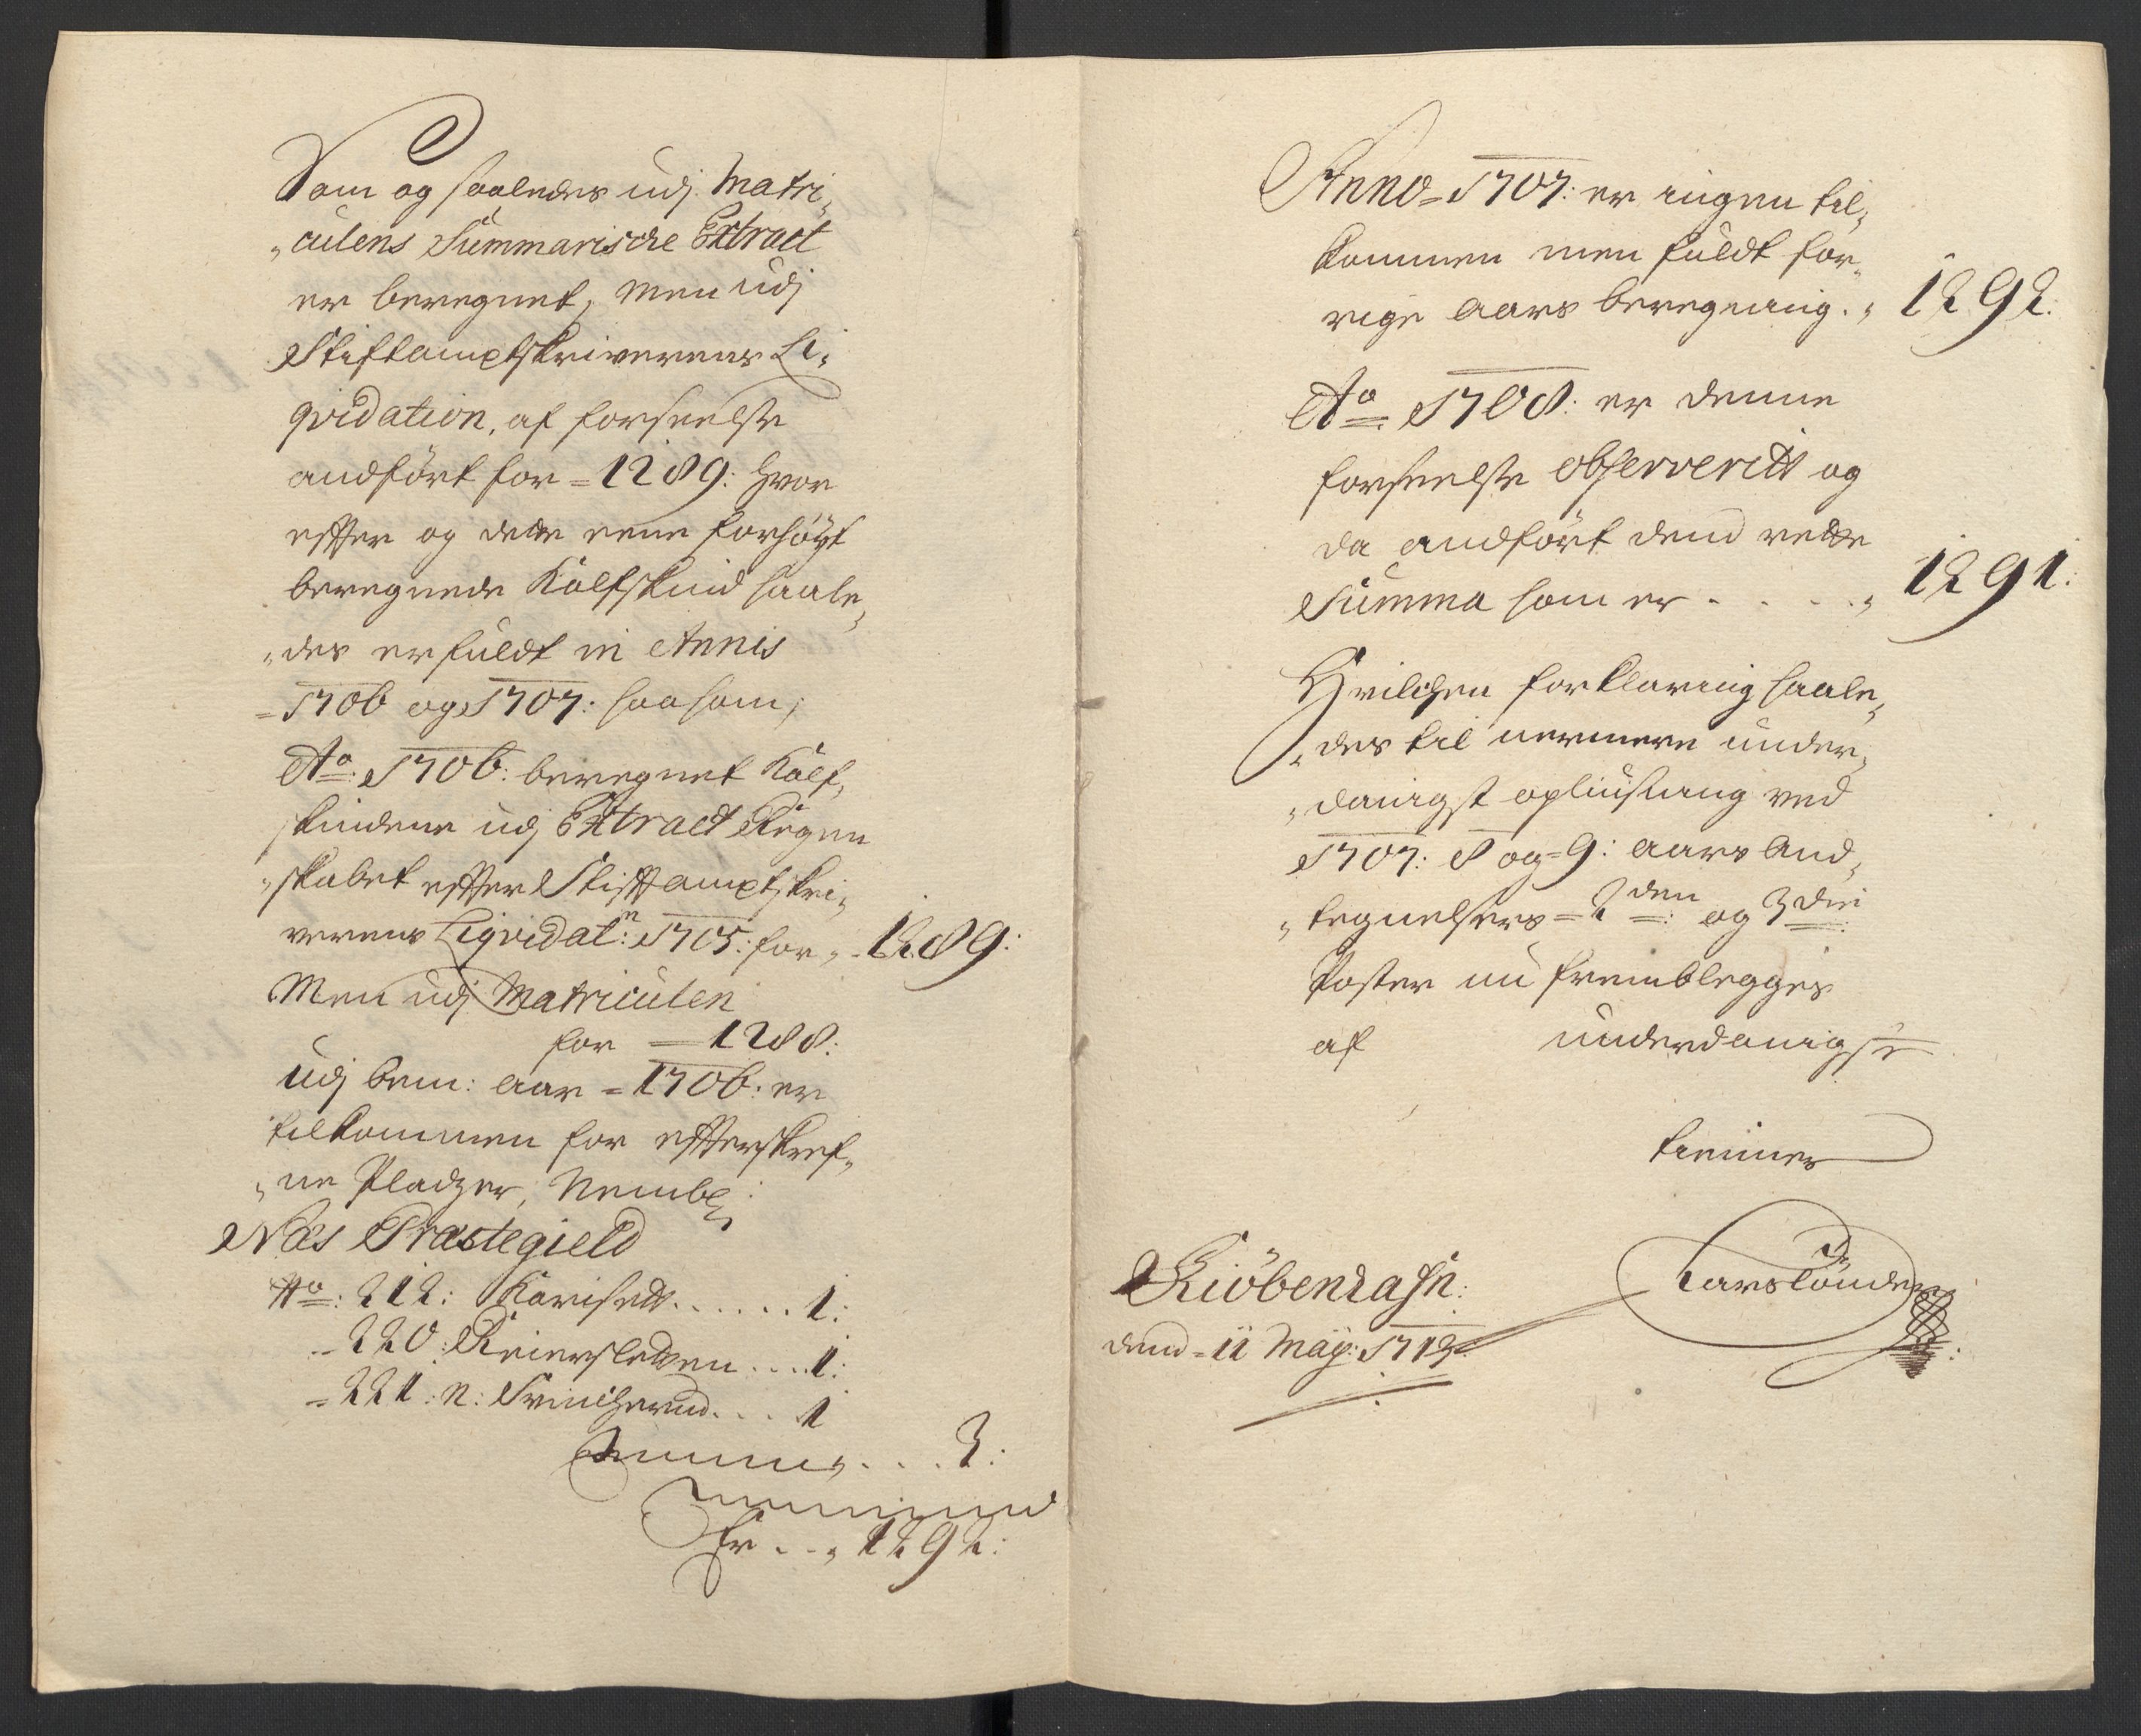 Som og saaledes udj Matri,
„culens Summarische Extract
er beregnet, men udj
Stiftamptskriverens Li,
qvidation, af forseelse
andført for = 1289: hvor
effter og dette eene forhöyt
beregnede Kalfskind saale,
„des er fuldt in Annis
= 1706 og 1707: saasom,
Ao: 1706: beregnet Kalf,
skindene udj Extract Regen
„skabet effter Stifftamptskri,
verens Liqvidat:n 1705: for „ 1289:
Men udj Matriculen
for = 1288:
Udj bem: aar = 1706: er
tilkommen for effterskref,
„ne Pladzer, Nembl:
Næs Præstegield
No: 212: Karisett . . . . . . 1:
= 220: Reiersletten . . . . 1:
= 221: n: . . . 1
Summa . . . 3:
Er . . „ 1292:
Anno = 1707: er ingen til,
kommen men fuldt for,
rige aars beregning. „ 1292:
Ao 1708: er denne
forseelse observerett og
da andført dend rette
Summa som er . . . . „ 1291:
Hvilchen forklaring saale,
„des til nermere under,
„danigst opliusning ved
1707: 8 og = 9: aars And,
„tegnelsers = 2den: og 3die:
Poster nu frembleggis
af underdanigste
tienner
Kiöbenhafn:
dend = 11 Maij: 1712